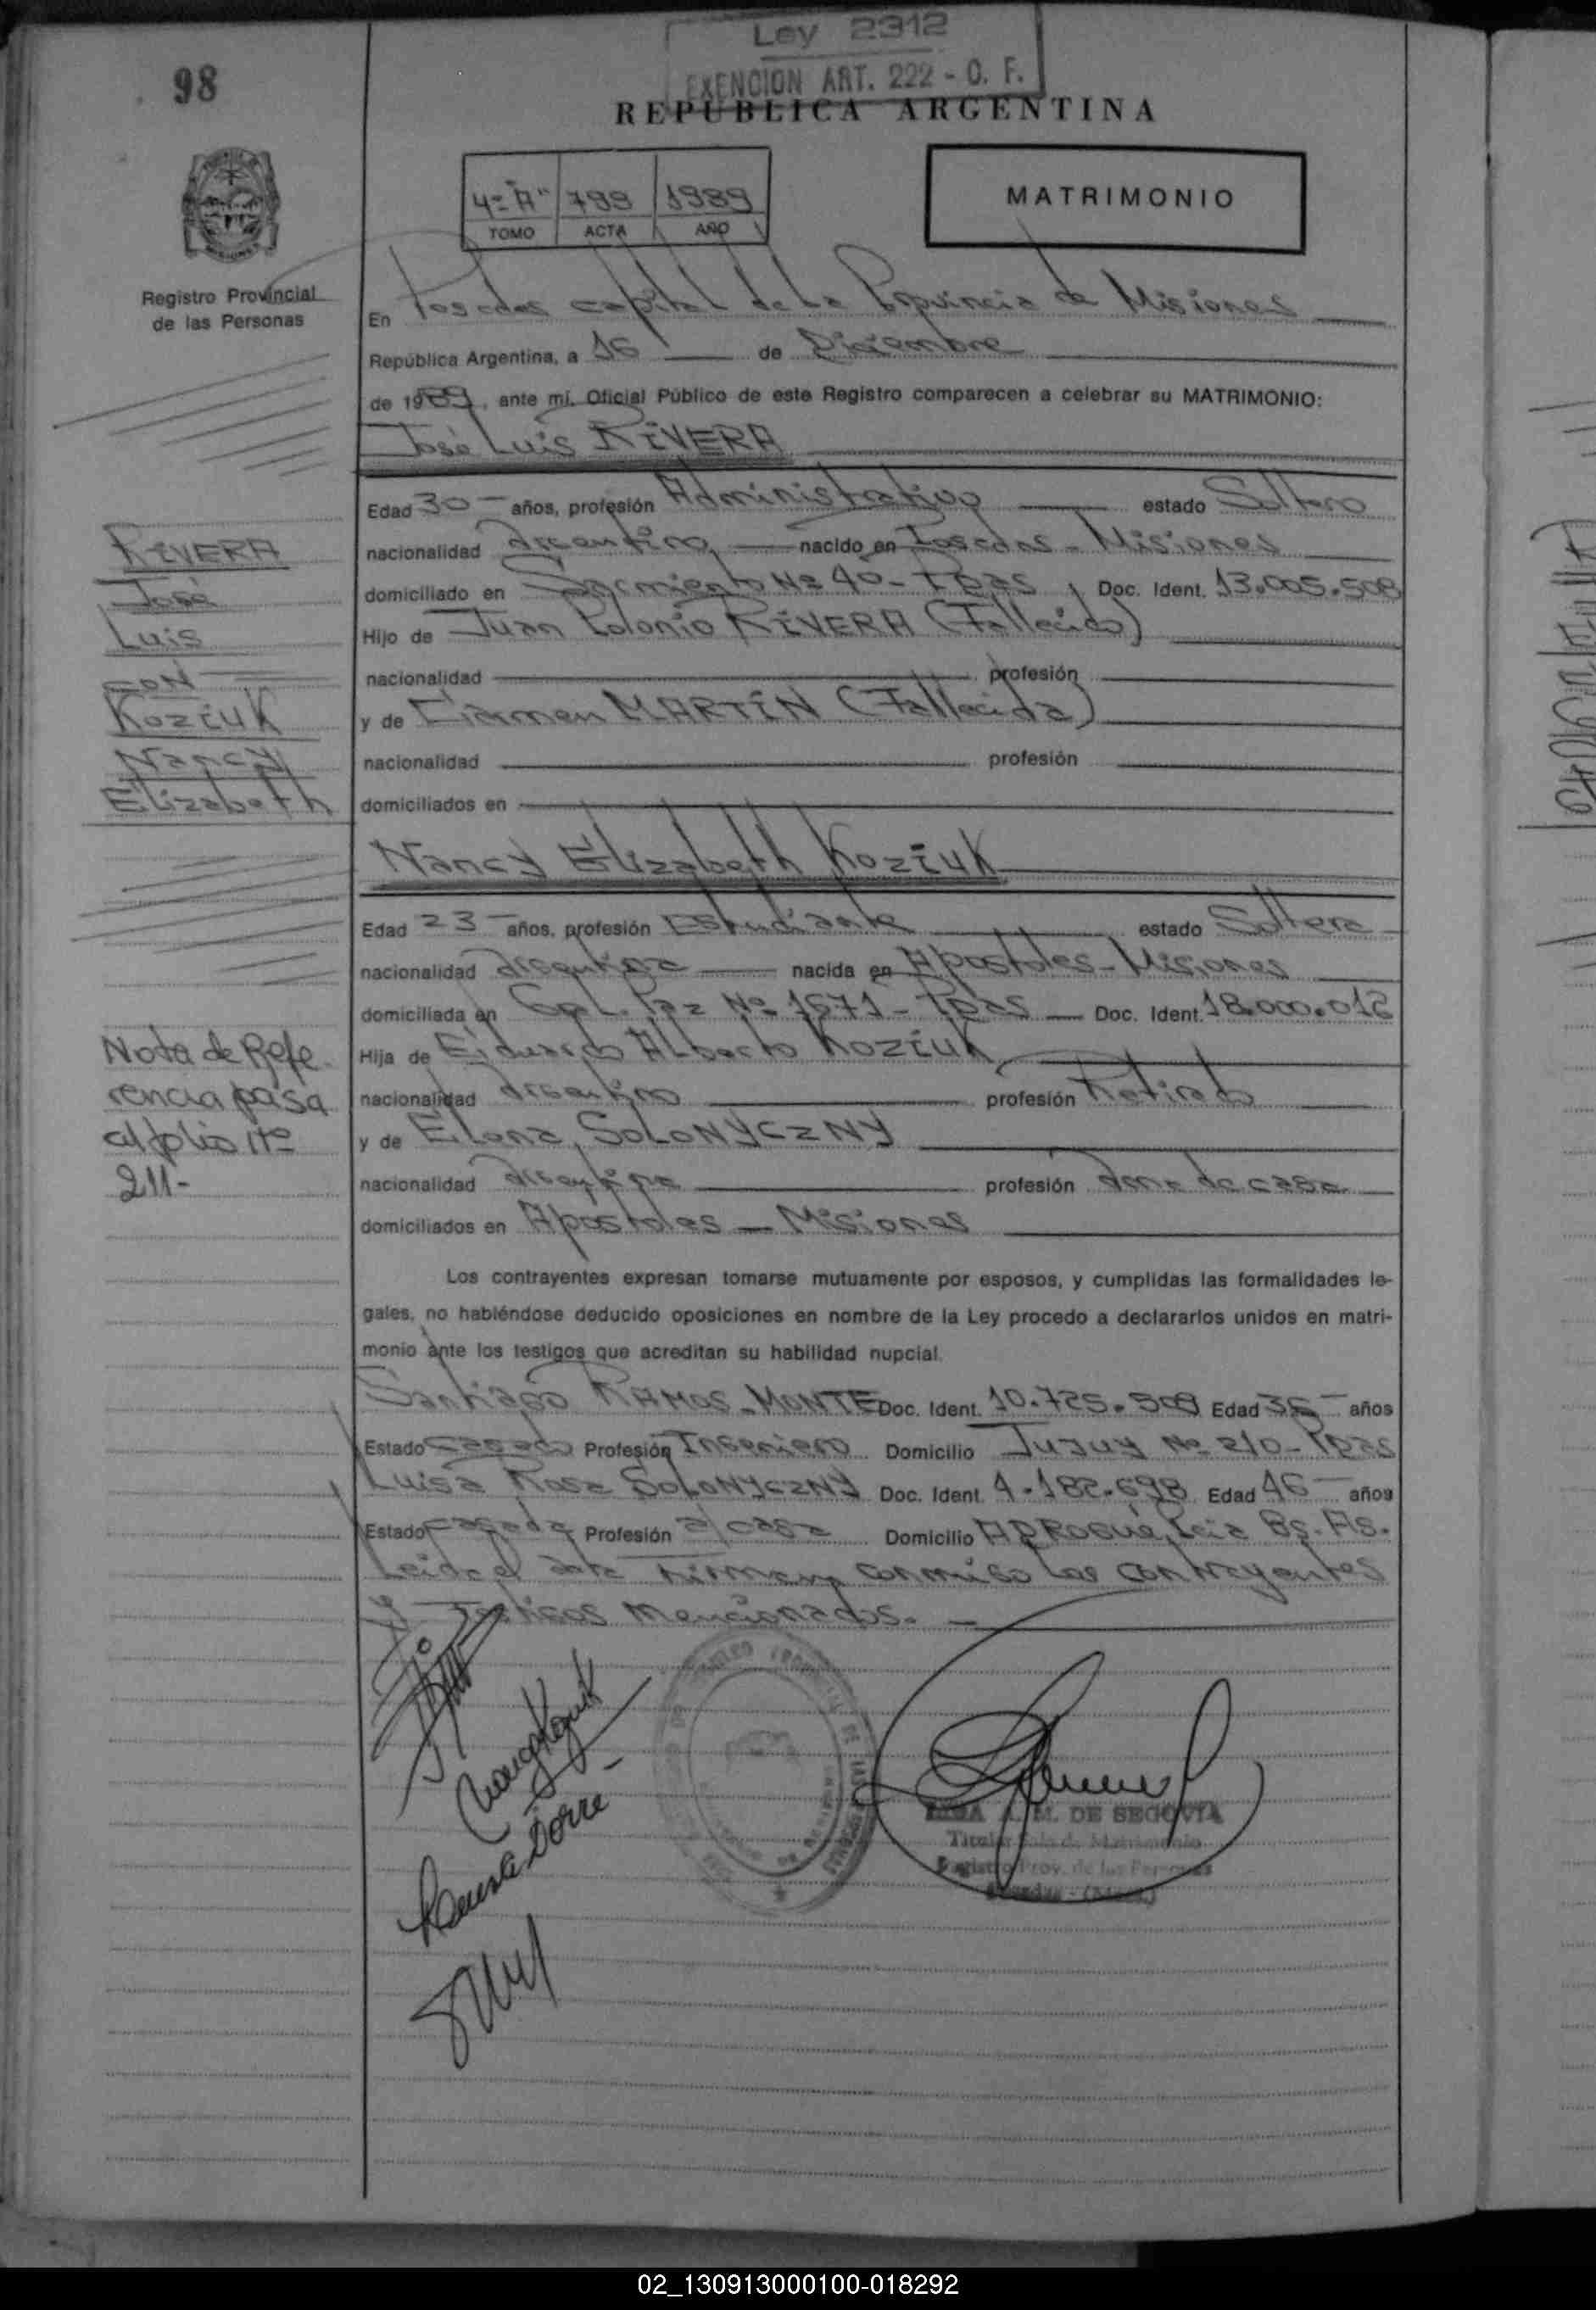 Ley 2312
EXENCION ART. 222 - O. F.
98
REPUBLICA ARGENTINA
4º "A" 799 1989
TOMO ACTA AÑO
MATRIMONIO
Registro Provincial
de las Personas
En Posadas capital de la Provincia de Misiones
República Argentina, a 16 de Diciembre
de 1989, ante mí, Oficial Público de este Registro comparecen a celebrar su MATRIMONIO:
José Luis RIVERA
Edad 30 años, profesión Administrativo estado Soltero
nacionalidad Argentino nacido en Posadas - Misiones
domiciliado en Sarmiento Nº 40 - Pdas Doc. Ident. 13.005.508
Hijo de Juan Polonio RIVERA (Fallecido)
nacionalidad profesión
y de Carmen MARTIN (Fallecida)
nacionalidad profesión
domiciliados en
RIVERA
José
Luis
CON
KoziuK
Nancy
Elizabeth
Nancy Elizabeth KoziuK
Edad 23 años, profesión Estudiante estado Soltera
nacionalidad Argentina nacida en Apostoles - Misiones
domiciliada en Gral. Paz Nº 1671 - Pdas Doc. Ident. 18.000.012
Hija de Eduardo Alberto KoziuK
nacionalidad Argentino profesión Retirado
y de Elena SOLONYCZNY
nacionalidad Argentina profesión ama de casa
domiciliados en Apostoles - Misiones
Nota de Refe
rencia pasa
al folio Nº
211-
Los contrayentes expresan tomarse mutuamente por esposos, y cumplidas las formalidades le-
gales, no habiéndose deducido oposiciones en nombre de la Ley procedo a declararlos unidos en matri-
monio ante los testigos que acreditan su habilidad nupcial.
Santiago RAMOS-MONTE Doc. Ident. 10.725.509 Edad 36 años
Estado casado Profesión Ingeniero Domicilio Jujuy Nº 210 - Pdas
Luisa Rosa SOLONYCZNY Doc. Ident. 4.182.698 Edad 46 años
Estado casada Profesión a/casa Domicilio ADROGUÉ, Pcia Bs. As.
Leida el acta Firman conmigo los contrayentes
y Testigos mencionados.
Nancy Koziuk
A. M. DE SEGOVIA
Titular Sala de Matrimonio
Registro Prov. de las Personas
02_130913000100-018292